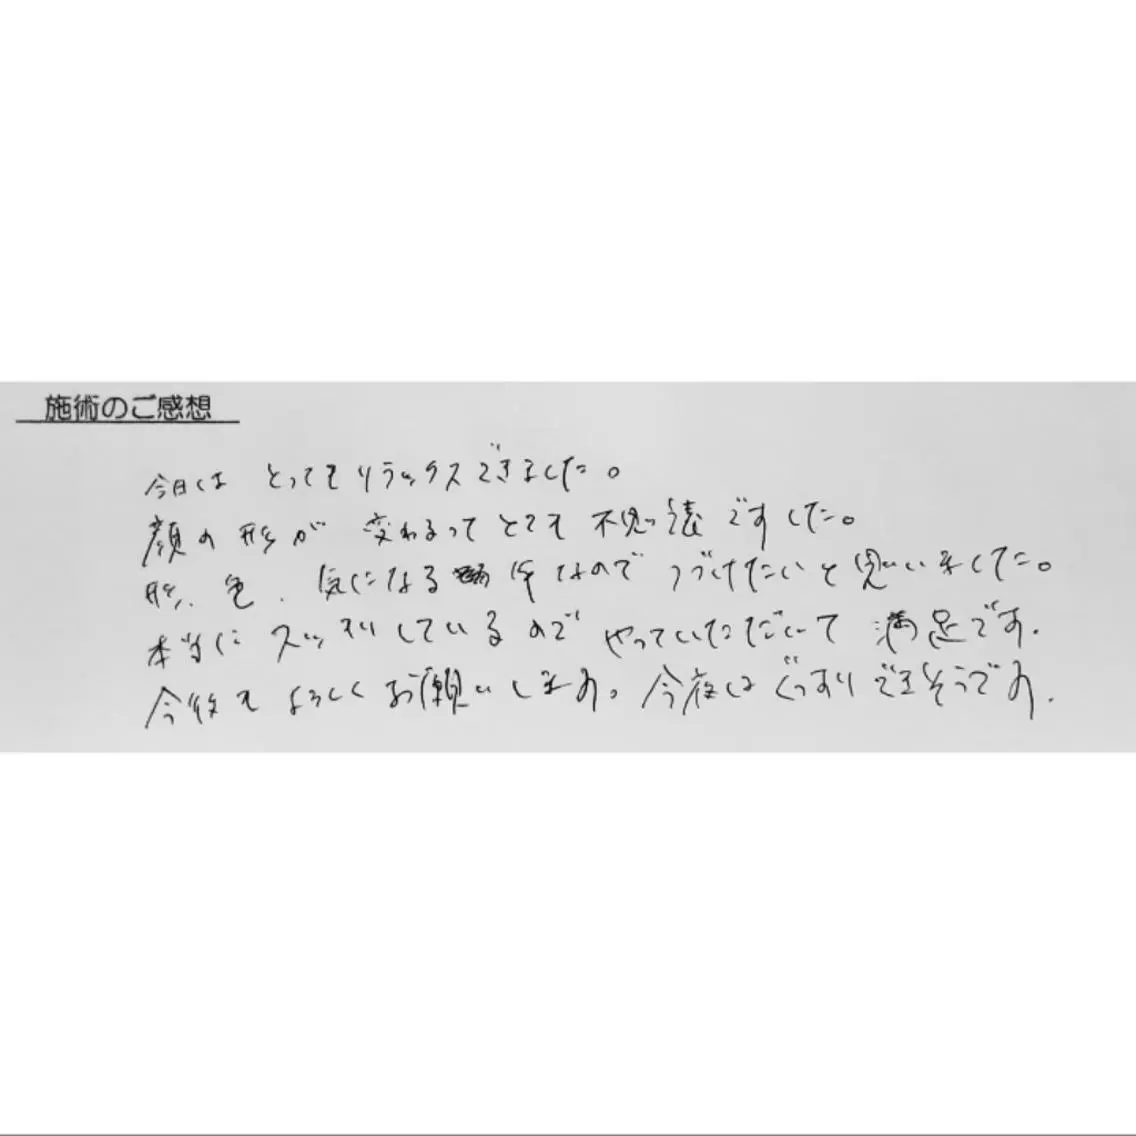 施術のご感想
今日は とってもリラックスできました。
顔の形が 変わるって とても 不思議ですした。
形、色、気になる 年なので つづけたいと思いました。
本当に スッキリしているので やっていただいて 満足です.
今後も よろしくお願いします。今夜はぐっすりできそうです.